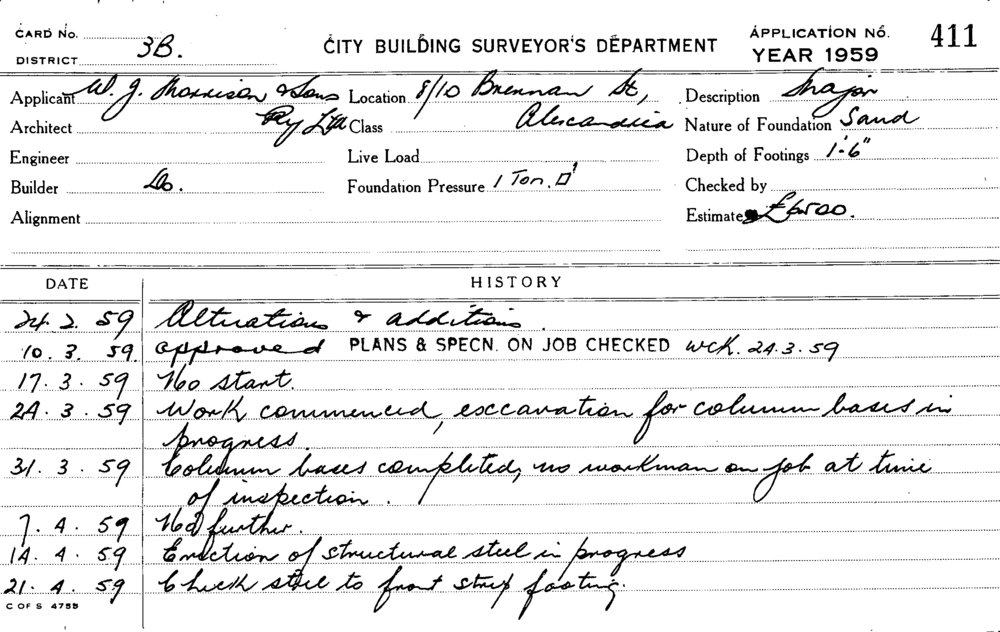 CARD No.
DISTRICT 3B.
CITY BUILDING SURVEYOR'S DEPARTMENT
APPLICATION No. 411
YEAR 1959
Applicant W. J. Morrison & Sons Location 8/10 Brennan St, Description Major
Architect Pty Ltd Class Alexandria Nature of Foundation Sand
Engineer Live Load Depth of Footings 1'-6"
Builder Do. Foundation Pressure 1 Ton. □' Checked by
Alignment Estimate
DATE HISTORY
24. 2. 59 Alterations & additions.
10. 3. 59. approved PLANS & SPECN. ON JOB CHECKED WCK. 24.3.59
17. 3. 59 No start.
24. 3. 59 Work commenced, excavation for column bases in
progress.
31. 3. 59 Column bases completed, no workman on job at time
of inspection.
7. 4. 59 No further.
14. 4. 59 Erection of structural steel in progress
21. 4. 59 Check steel to front strip footing.
C OF S 475B